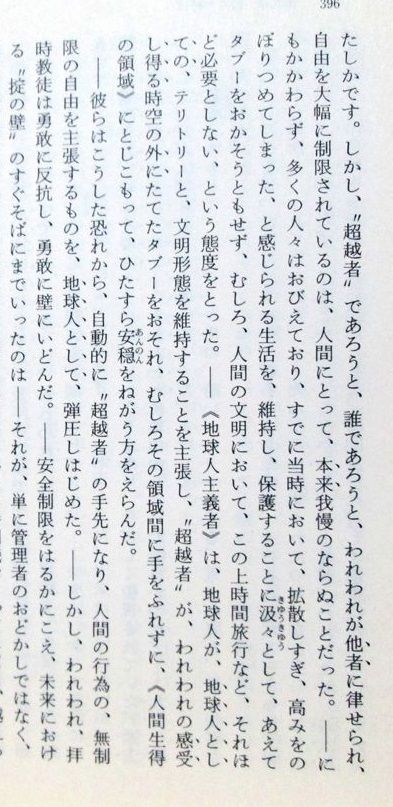 396
たしかです。しかし、〝超越者〟であろうと、誰であろうと、われわれが他者に律せられ、
自由を大幅に制限されているのは、人間にとって、本来我慢のならぬことだった。――に
もかかわらず、多くの人々はおびえており、すでに当時において、拡散しすぎ、高みをの
ぼりつめてしまった、と感じられる生活を、維持し、保護することに汲々として、あえて
きゅうきゅう
タブーをおかそうともせず、むしろ、人間の文明において、この上時間旅行など、それほ
ど必要としない、という態度をとった。――《地球人主義者》は、地球人が、地球人とし
ての、テリトリーと、文明形態を維持することを主張し、〝超越者〟が、われわれの感受
し得る時空の外にたてたタブーをおそれ、むしろその領域間に手をふれずに、《人間生得
の領域》にとじこもって、ひたすら安穏をねがう方をえらんだ。
あんのん
――彼らはこうした恐れから、自動的に〝超越者〟の手先になり、人間の行為の、無制
限の自由を主張するものを、地球人として、弾圧しはじめた。――しかし、われわれ、拝
時教徒は勇敢に反抗し、勇敢に壁にいどんだ。――安全制限をはるかにこえ、未来におけ
る〝掟の壁〟のすぐそばにまでいったのは――それが、単に管理者のおどかしではなく、